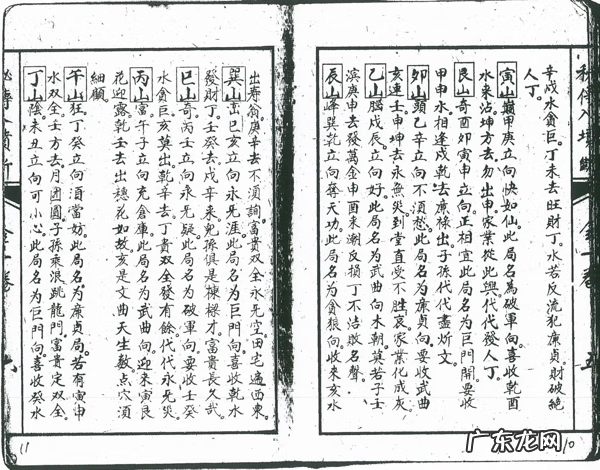 辛戌水貪巨丁未去旺財丁水若反流犯廉貞財破絕
人丁
寅山甲庚立向快如仙此局名為破軍向喜收乾
水來沾坤方去勿出申家業從此興代代發人丁
艮山奇酉卯寅申立向正相宜此局名為巨門開要收
甲申水相逢戌乾去廉祿出子孫代代盡斯文
卯山頭乙辛立向不須愁此局名為廉貞向要收武曲
亥連壬申坤去永無災到堂直受不胜哀家業化成灰
乙山腦戌辰立向好此局名為武曲向水朝莫若子壬
濱庚申去發萬金申酉來潮反損丁不活敗名聲
辰山峰巽乾立向奪天功此局名為貪狼向收來亥水
出寿翁庚辛去不須詢富貴双全永無空田宅遍西東
巽山巒巳亥立向永無涯此局名為巨門向喜收乾水
發財丁壬癸去戌辛來兒孫俱是棟樑才富貴長久武
巳山奇丙壬立向永無疑此局名為破軍向要收壬癸
水貪巨亥莫出乾辛去丁貴双全發有餘代代永無災
丙山富午子立向充倉庫此局名為武曲向迎來寅艮
花迎露乾壬去出穗花如故亥是文曲天生数点穴須
細顧
午山狂丁癸立向酒當妨此局名為廉貞局若有寅申
水双全壬方去月团圓子孫乘浪跳龍門富貴定双全
丁山陰未丑立向可小心此局名為巨門向喜收癸水
11
10
广东龙网